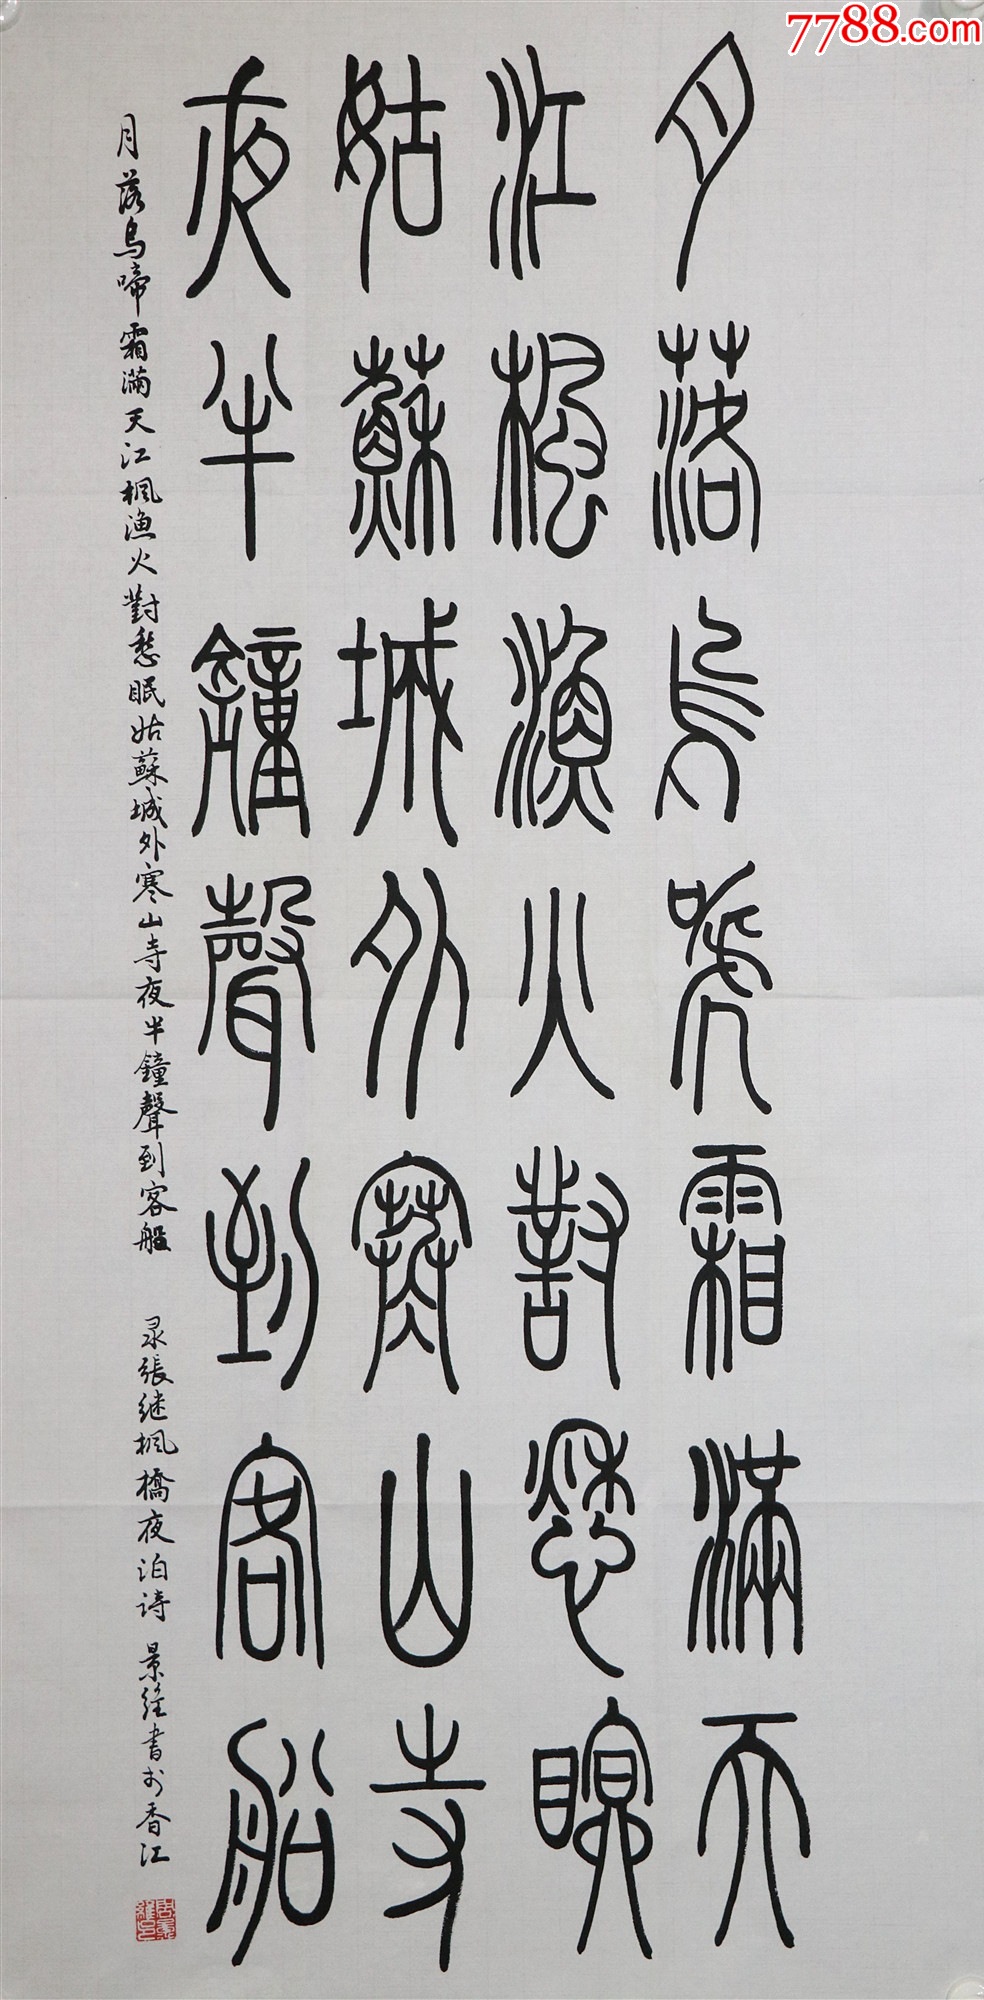 7788.com
月落烏嗁霜滿天
江楓漁火對愁瞑
姑蘇城外寒山寺
夜半鐘聲到客船
月落烏啼霜滿天江楓漁火對愁眠姑蘇城外寒山寺夜半鐘聲到客船 录張继楓橋夜泊诗 景維書於香江